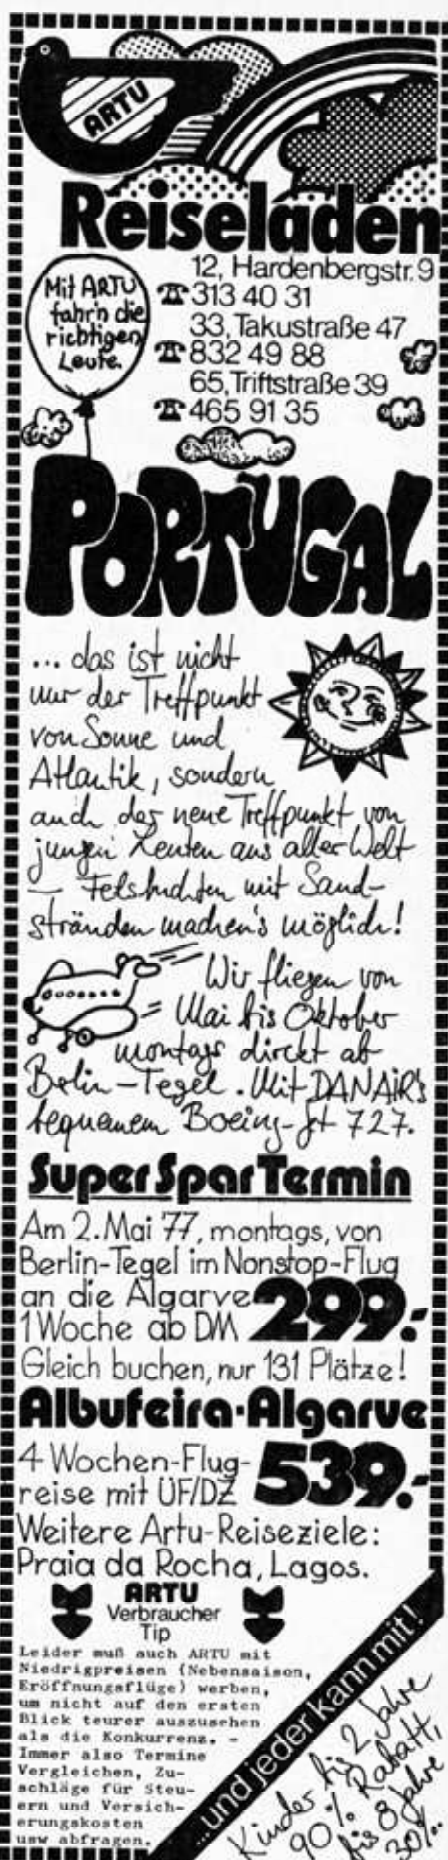 ARTU
Reiseladen
12, Hardenbergstr. 9
☎ 313 40 31
33, Takustraße 47
☎ 832 49 88
65, Triftstraße 39
☎ 465 91 35
Mit ARTU
fahr'n die
richtigen
Leute.
PORTUGAL
... das ist nicht
nur der Treffpunkt
von Sonne und
Atlantik, sondern
auch der neue Treffpunkt von
jungen Leuten aus aller Welt
– Felsbuchten mit Sand-
stränden machen's möglich!
Wir fliegen von
Mai bis Oktober
montags direkt ab
Berlin-Tegel. Mit DANAIR's
bequemem Boeing-Jet 727.
Super Spar Termin
Am 2. Mai 77, montags, von
Berlin-Tegel im Nonstop-Flug
an die Algarve
1 Woche ab DM 299.-
Gleich buchen, nur 131 Plätze!
Albufeira·Algarve
4 Wochen-Flug-
reise mit ÜF/DZ 539.-
Weitere Artu-Reiseziele:
Praia da Rocha, Lagos.
ARTU
Verbraucher
Tip
Leider muß auch ARTU mit
Niedrigpreisen (Nebensaison,
Eröffnungsflüge) werben,
um nicht auf den ersten
Blick teurer auszusehen
als die Konkurrenz. –
Immer also Termine
Vergleichen, Zu-
schläge für Steu-
ern und Versich-
erungskosten
usw abfragen.
...und jeder kann mit!
Kinder bis 2 Jahre
90% Rabatt,
bis 8 Jahre
30%.